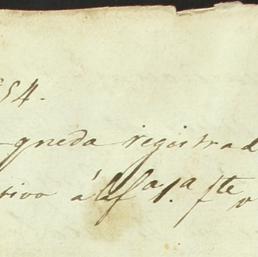 54.
queda registrad
tivo á la f.ª 1.ª fte